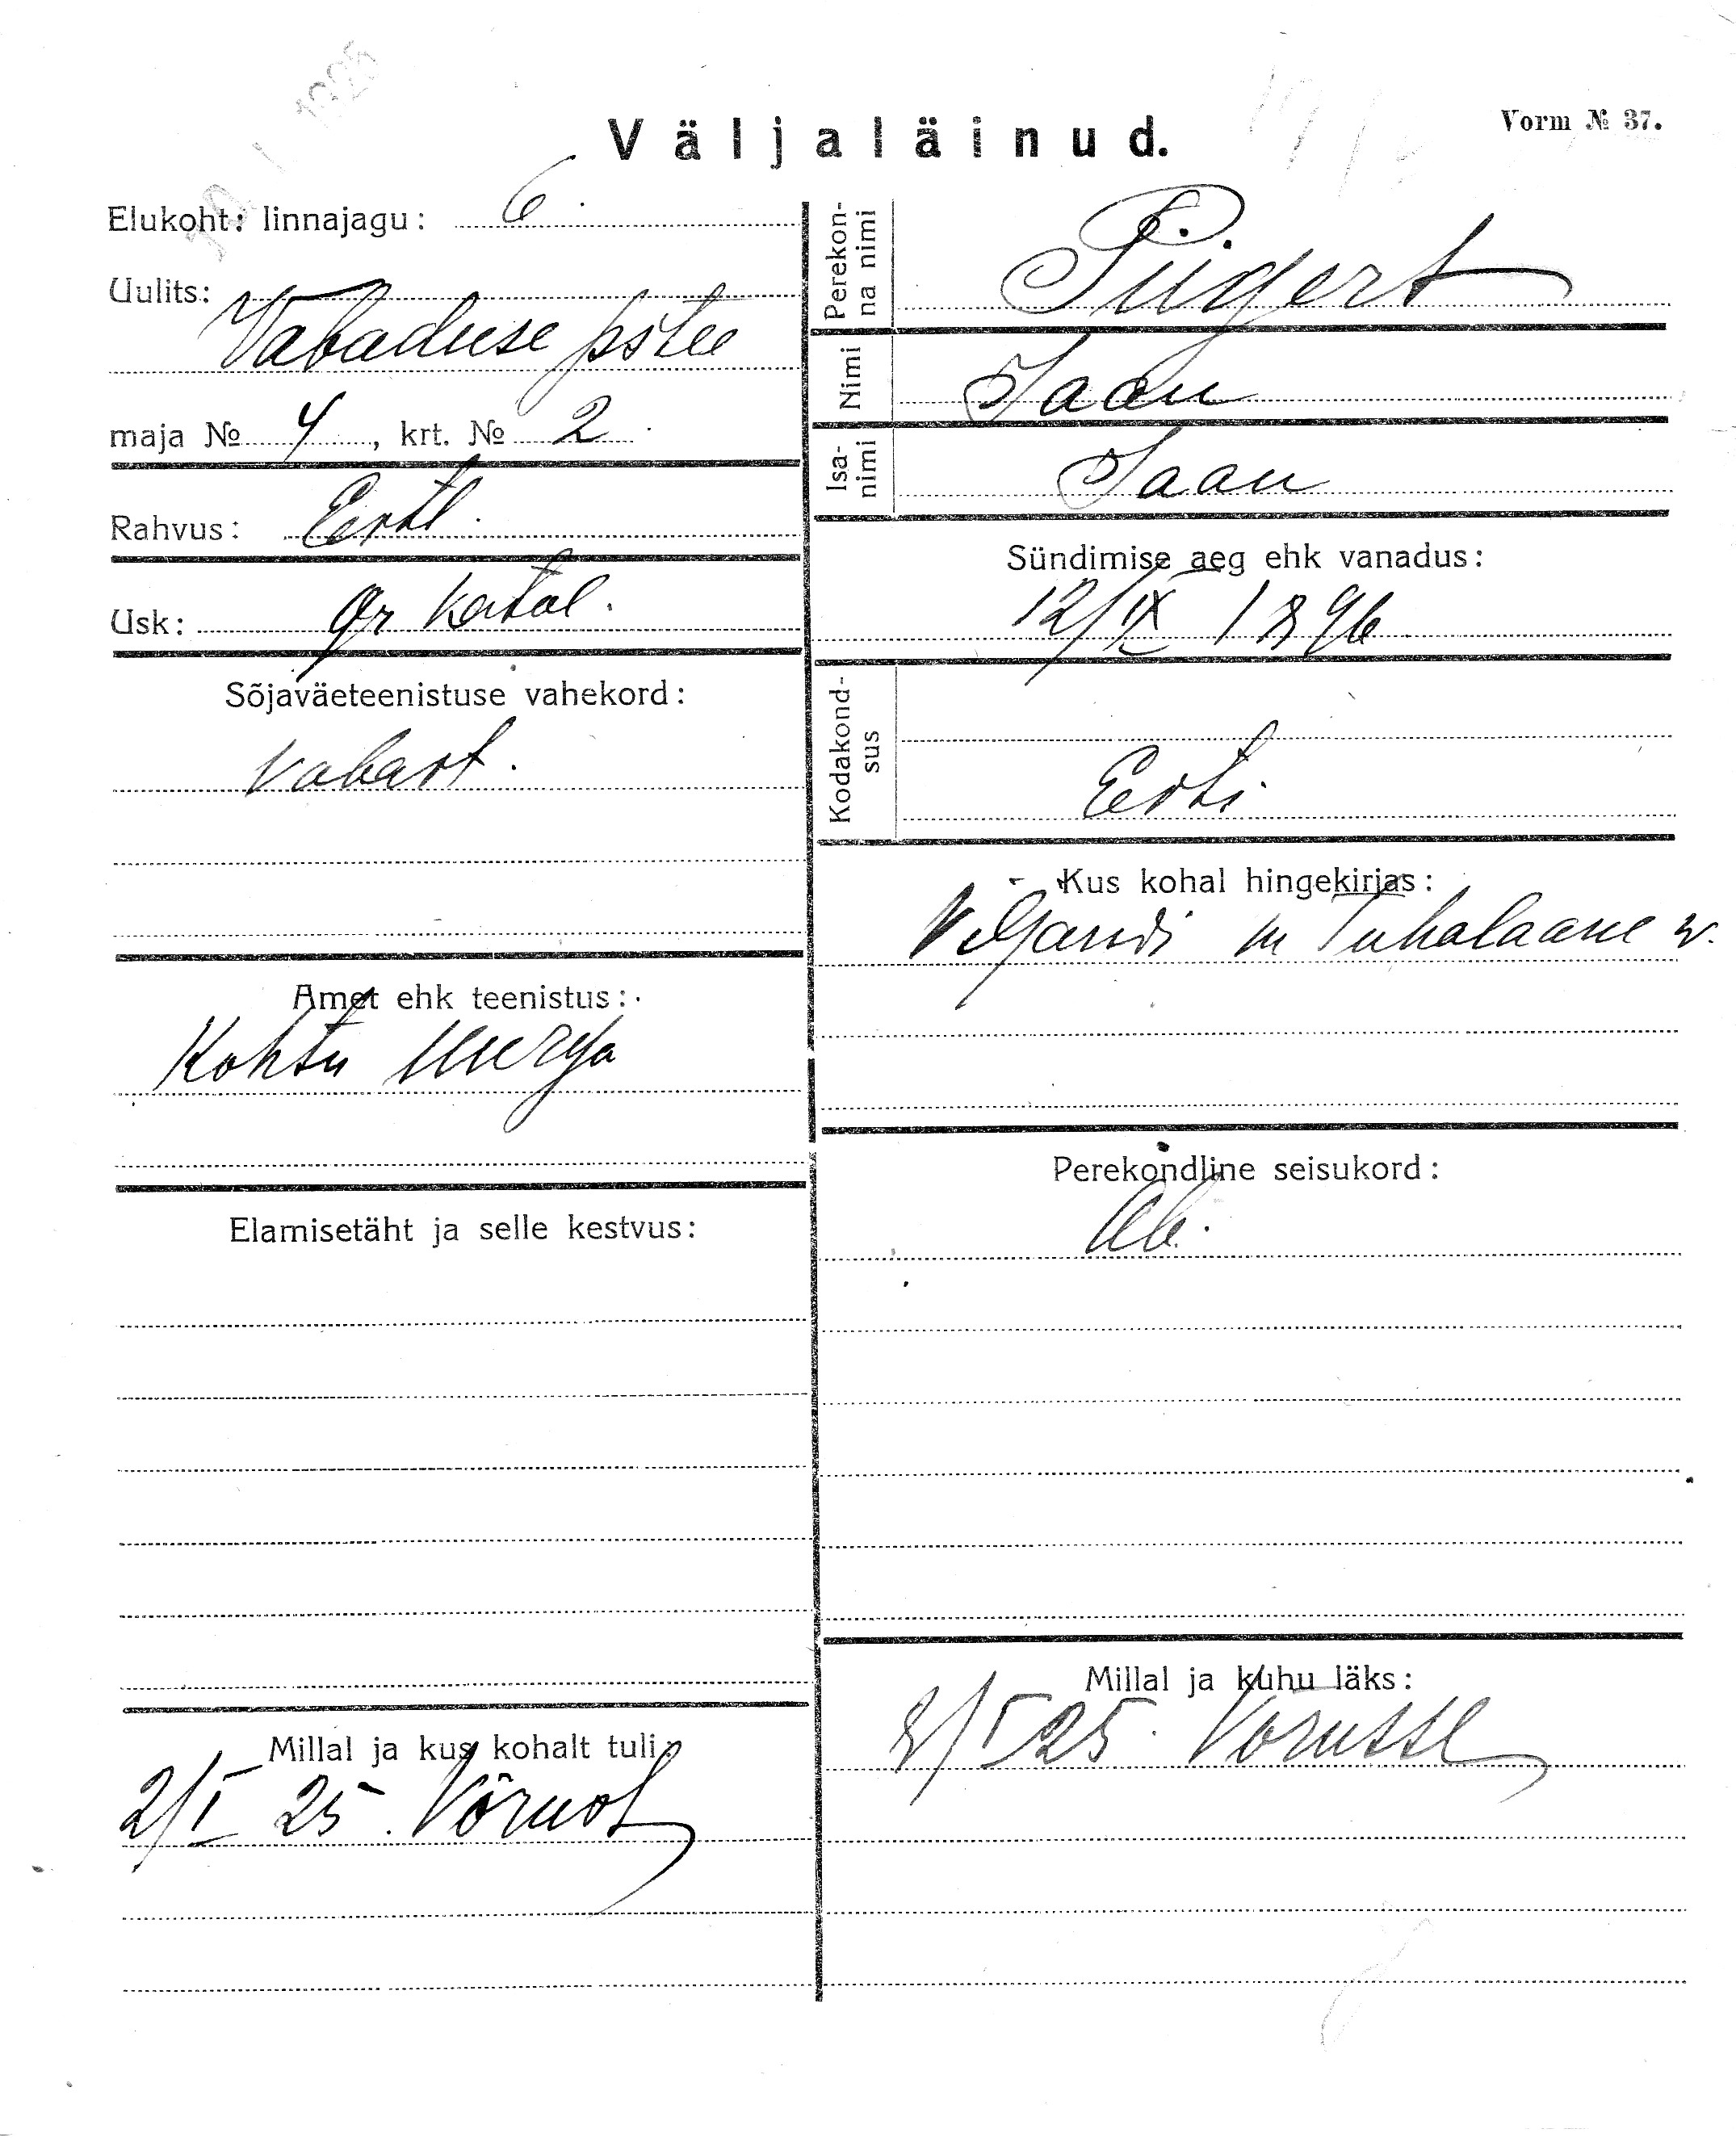 Väljaläinud.
Vorm № 37.
Elukoht: linnajagu: 6.
Uulits:
Vabaduse pstee
maja № 4, krt. № 2.
Rahvus: Eesti.
Usk: gr katol.
Sõjaväeteenistuse vahekord:
vabast.
Amet ehk teenistus:
Kohtu uurija
Elamisetäht ja selle kestvus:
Millal ja kus kohalt tuli:
2/I 25. Võrust
Perekonna nimi Pügert
Nimi Jaan
Isanimi Jaan
Sündimise aeg ehk vanadus:
12/IX 1896
Kodakondsus
Eesti
Kus kohal hingekirjas:
Viljandi m Tuhalaane v.
Perekondline seisukord:
Ab.
Millal ja kuhu läks:
8/I 25. Võrusse